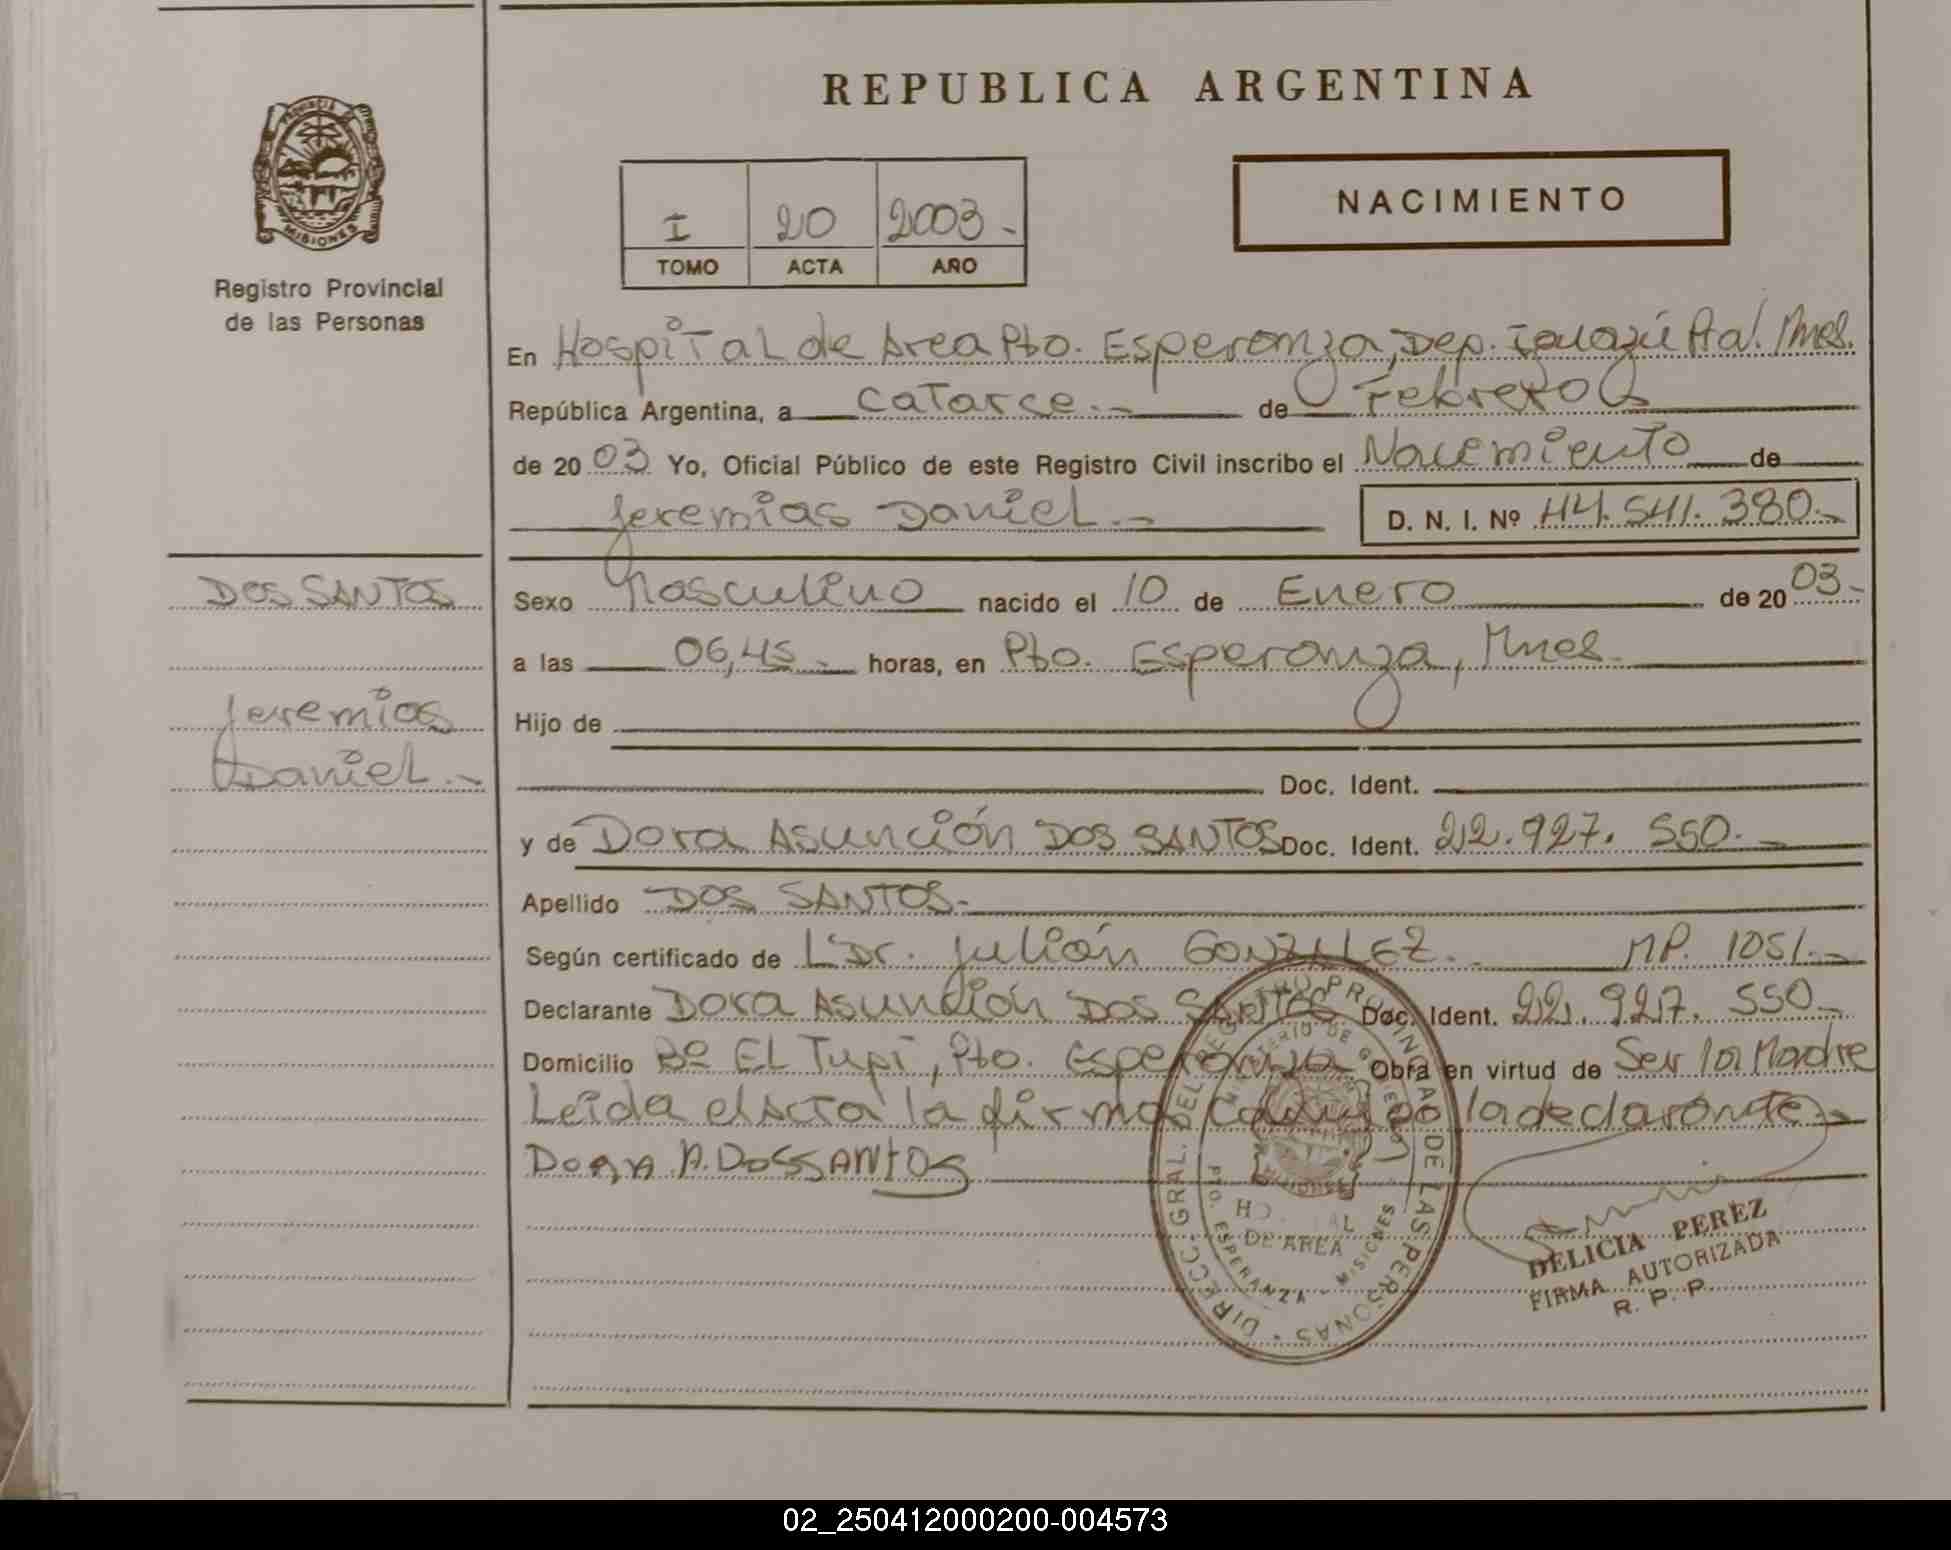 REPUBLICA ARGENTINA
PROVINCIA
MISIONES
Registro Provincial
de las Personas
I 20 2003-
TOMO ACTA AÑO
NACIMIENTO
En Hospital de Area Pto. Esperanza, Dep. Iguazú Pta! Mnes.
República Argentina, a catorce.- de Febrero
de 20 03 Yo, Oficial Público de este Registro Civil inscribo el Nacimiento de
Jeremias Daniel.- D. N. I. Nº 44.541.380.-
DOS SANTOS
Jeremias
Daniel.-
Sexo Masculino nacido el 10 de Enero de 20 03.-
a las 06,45.- horas, en Pto. Esperanza, Mnes.
Hijo de
Doc. Ident.
y de Dora Asunción DOS SANTOS Doc. Ident. 22.927.550.-
Apellido DOS SANTOS.-
Según certificado de Dr. Julián GONZALEZ. MP. 1051.-
Declarante Dora Asunción DOS SANTOS Doc. Ident. 22.927.550.-
Domicilio Bº EL Tupi, Pto. Esperanza Obra en virtud de Ser la Madre
Leida el Acta la firma conmigo la declarante.-
DORA A. DOS SANTOS
DIRECC. GRAL. DEL REGISTRO PROVINCIAL DE LAS PERSONAS
MINISTERIO DE GOBIERNO
MISIONES
HO AL
DE AREA
PTO. ESPERANZA - MISIONES
DELICIA PEREZ
FIRMA AUTORIZADA
R. P. P.
02_250412000200-004573